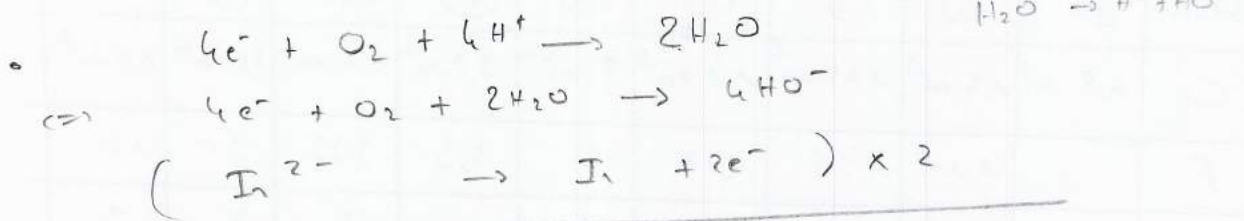 H₂O → H⁺ + HO⁻
• 4e⁻ + O₂ + 4H⁺ → 2H₂O
<=> 4e⁻ + O₂ + 2H₂O → 4HO⁻
( In²⁻ → In + 2e⁻ ) × 2